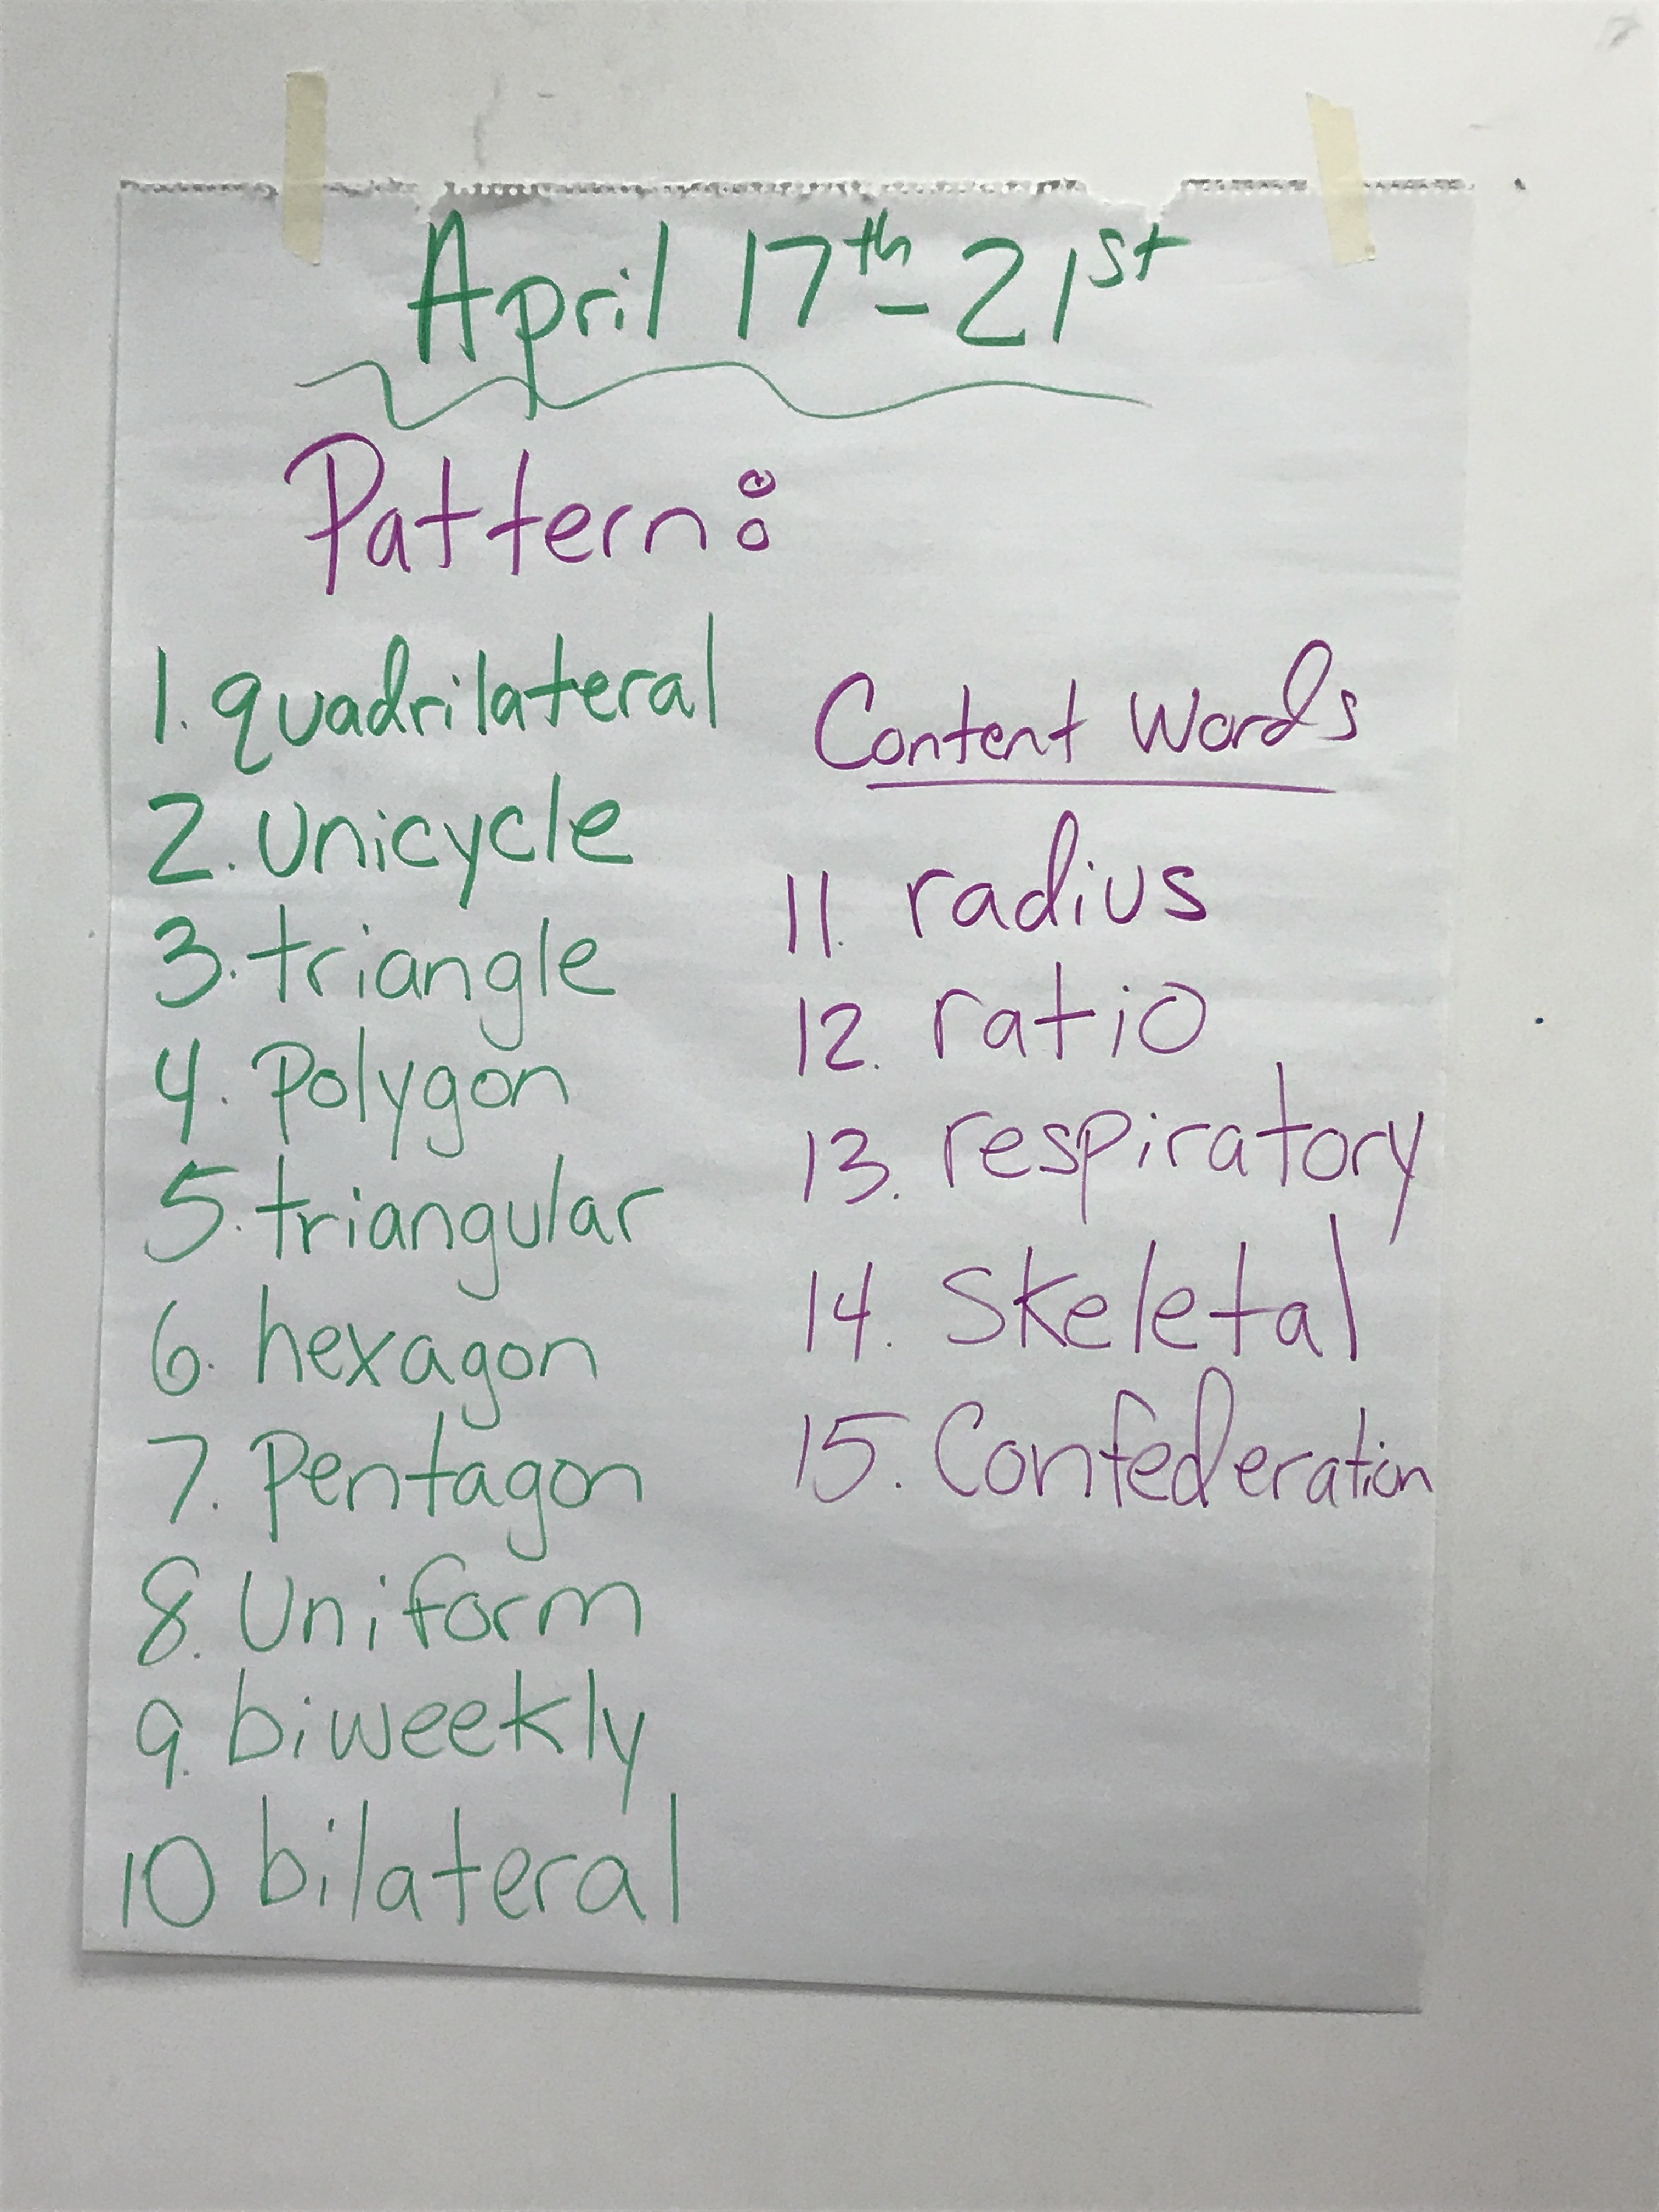 April 17th - 21st
Pattern:
1. quadrilateral
2. unicycle
3. triangle
4. Polygon
5. triangular
6. hexagon
7. Pentagon
8. Uniform
9. biweekly
10 bilateral
Content Words
11. radius
12. ratio
13. respiratory
14. Skeletal
15. Confederation